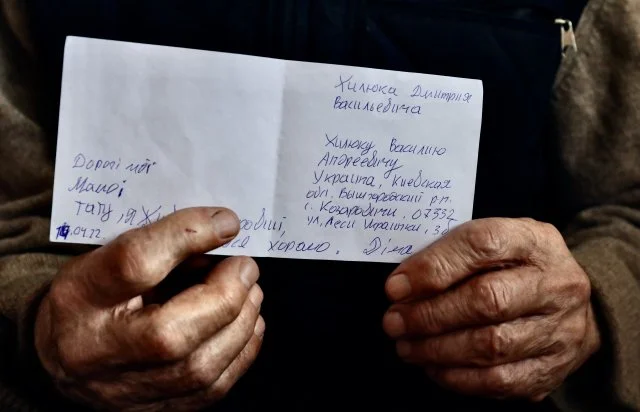 Хилюка Дмитрия
Васильевича
Хилюку Василию
Андреевичу
Украина, Киевская
обл. Вышгородский р-н.
с. Козаровичи, 07332
ул. Леси Украинки,
Дорогі мої
Мамо і
тату, я
хорошо. Діма
.04.22